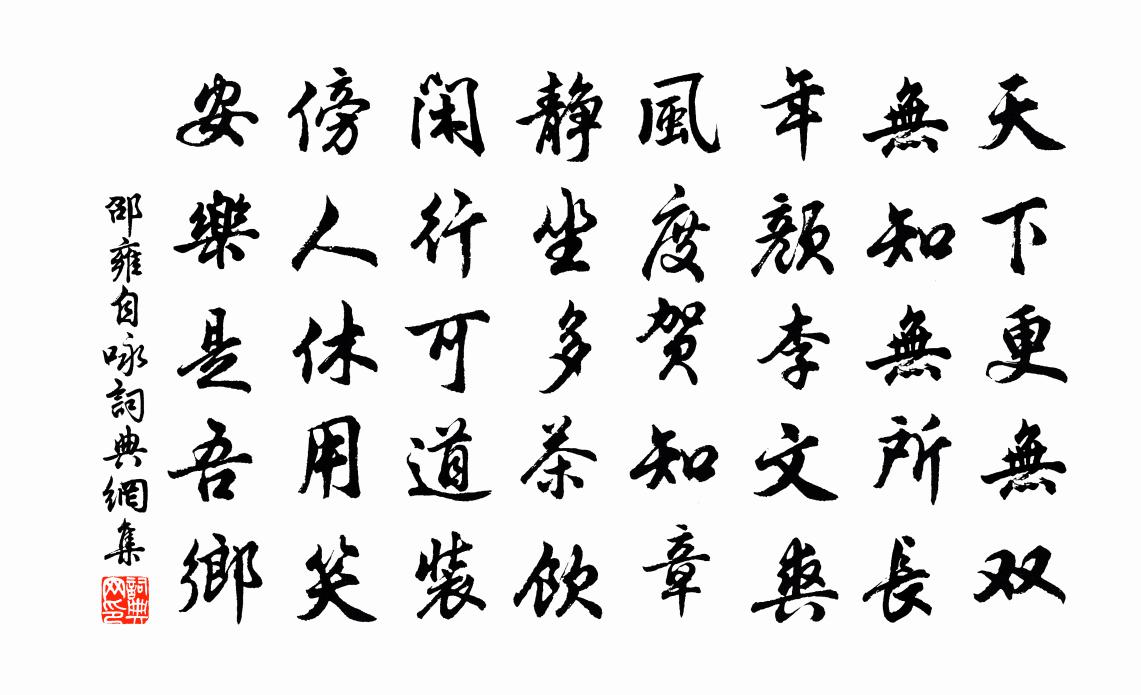 天下更無双
無知無所長
年顏李文爽
風度賀知章
靜坐多茶飲
閑行可道裝
傍人休用笑
安樂是吾鄉
邵雍自咏詞典網集
詞典网印